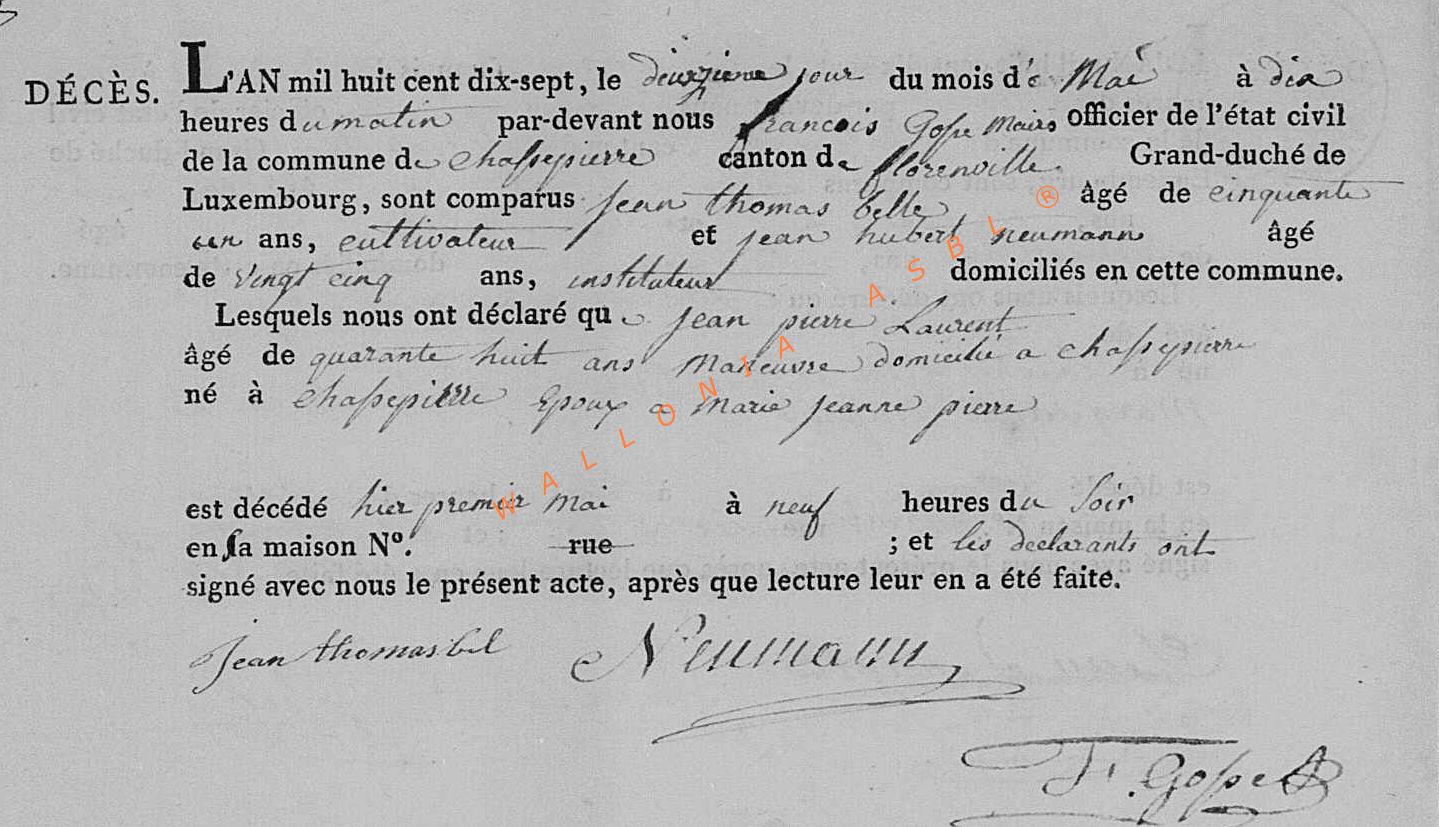 DÉCÈS. L'AN mil huit cent dix-sept, le deuxzieme jour du mois de Mai à dix
heures du matin par-devant nous francois Gosse Maire officier de l'état civil
de la commune de chassepierre canton de florenville Grand-duché de
Luxembourg, sont comparus jean thomas belle âgé de cinquante
un ans, cultivateur et jean hubert neumann âgé
de vingt cinq ans, instituteur domiciliés en cette commune.
Lesquels nous ont déclaré que jean pierre Laurent
âgé de quarante huit ans Maneuvre domicilié a chassepierre
né à chassepierre Epoux a Marie jeanne pierre
est décédé hier premier mai à neuf heures du Soir
en sa maison Nº. rue ; et les declarants ont
signé avec nous le présent acte, après que lecture leur en a été faite.
Jean thomas bel Neumann
F. Gosse
WALLONIA ASBL ®